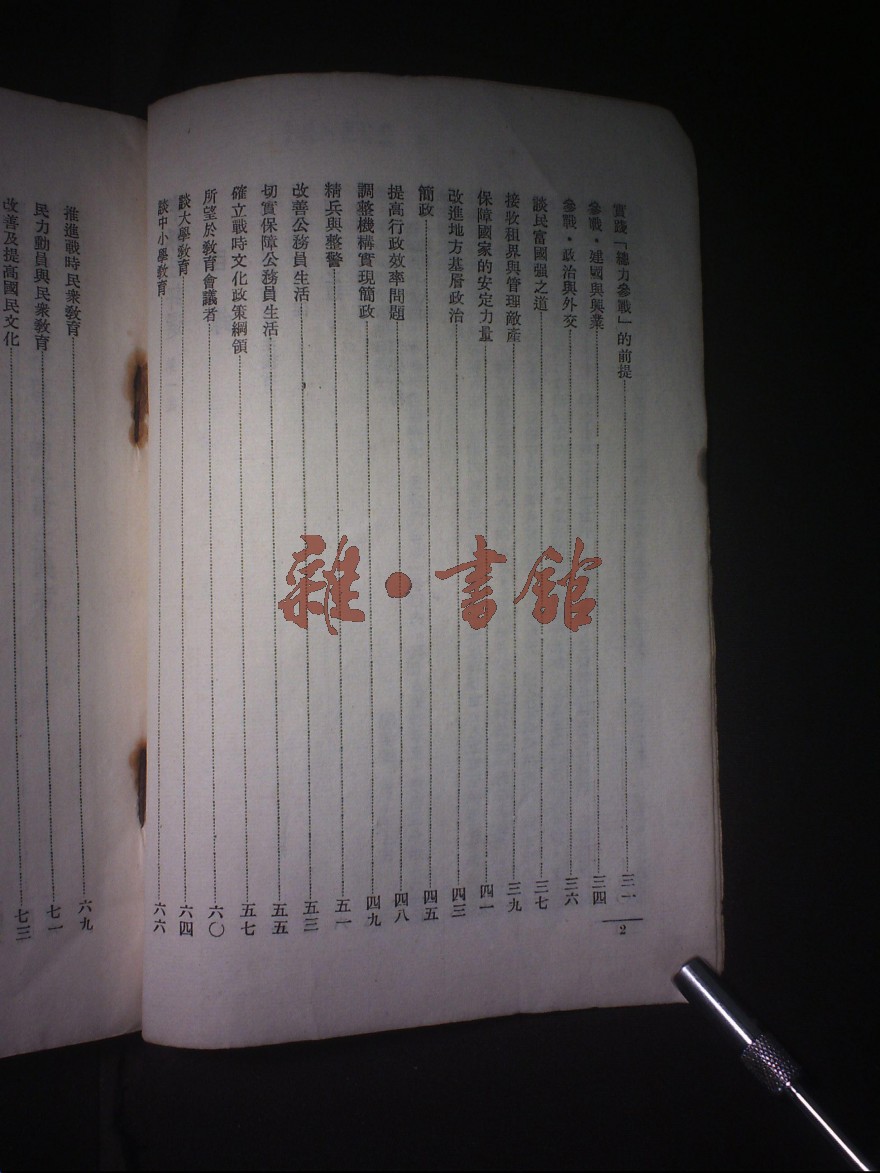 實踐「總力參戰」的前提……三一
參戰・建國與興業……三四
參戰・政治與外交……三六
談民富國强之道……三七
接收租界與管理敵產……三九
保障國家的安定力量……四一
改進地方基層政治……四三
簡政……四五
提高行政效率問題……四八
調整機構實現簡政……四九
精兵與整警……五一
改善公務員生活……五三
切實保障公務員生活……五五
確立戰時文化政策綱領……五七
所望於教育會議者……六〇
談大學教育……六四
談中小學教育……六六
2
推進戰時民衆教育……六九
民力動員與民衆教育……七一
改善及提高國民文化……七三
雜・書館